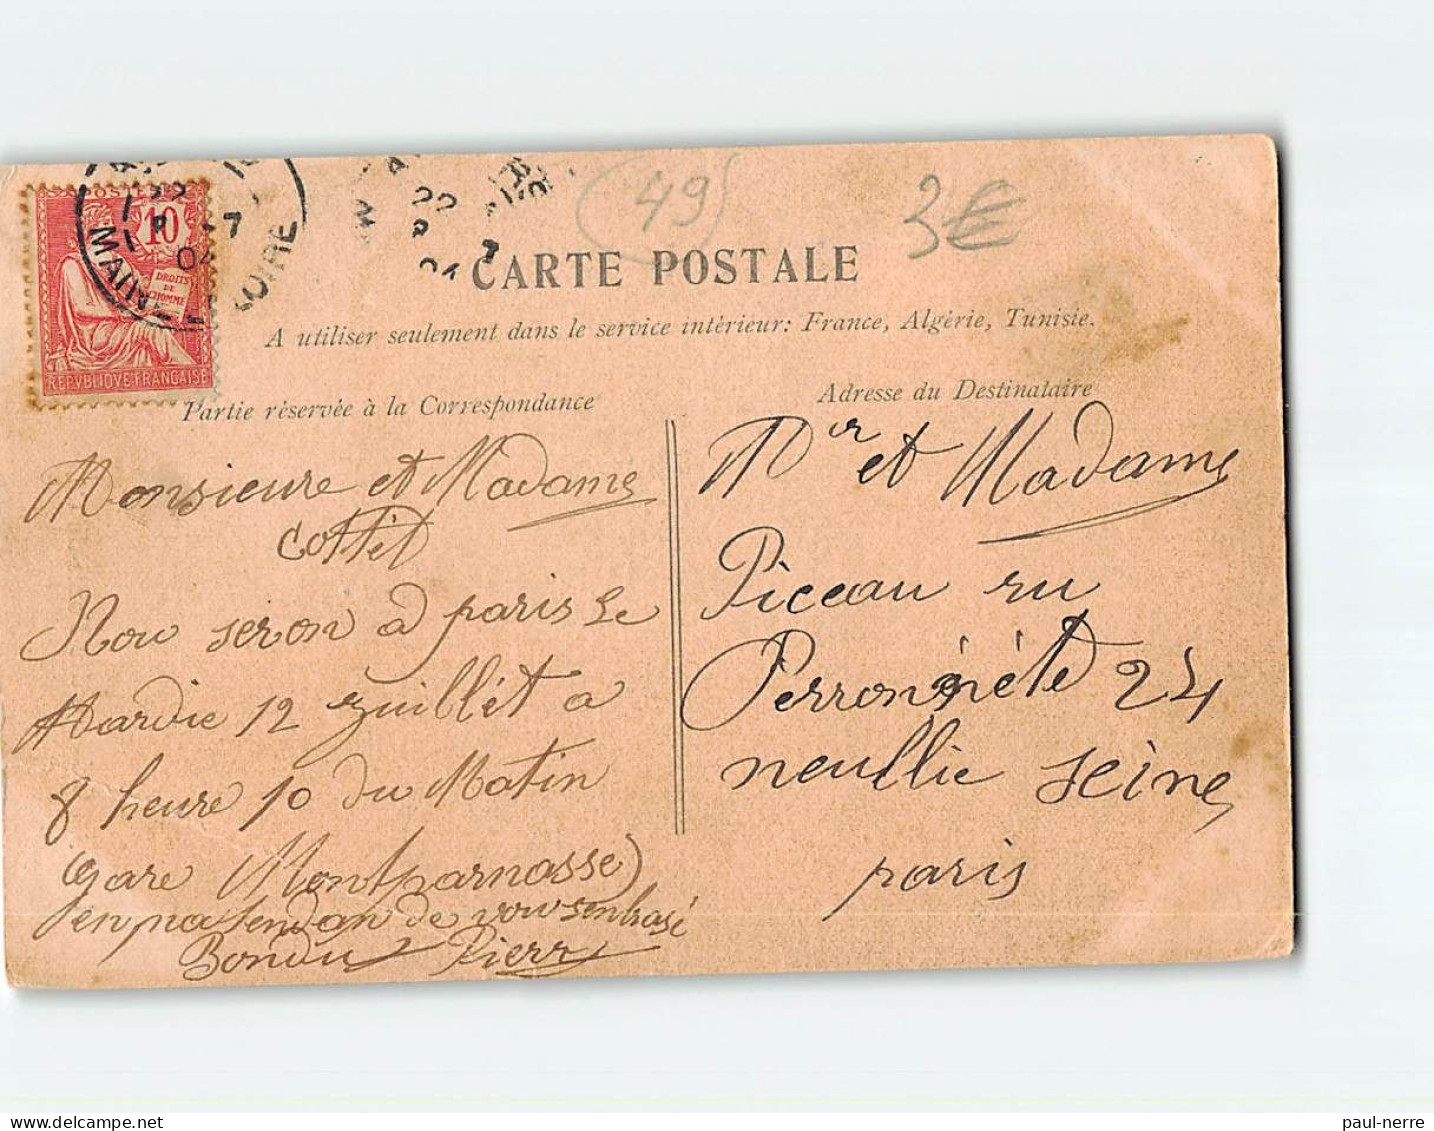 POSTES
10
DROITS
DE
L'HOMME
REPVBLIQVE FRANÇAISE
MAINE LOIRE
04
(49)
3€
CARTE POSTALE
A utiliser seulement dans le service intérieur: France, Algérie, Tunisie.
Partie réservée à la Correspondance
Adresse du Destinataire
Monsieure et Madame
Cottét
Nou seron à paris Le
Mardie 12 Juillét a
8 heure 10 du Matin
(gare Montparnasse)
en natendan de vou s'enbrasé
Bondu Pierr
Mr et Madame
Piceau ru
Perronénéte 24
neullie seine
paris
paul-nerre